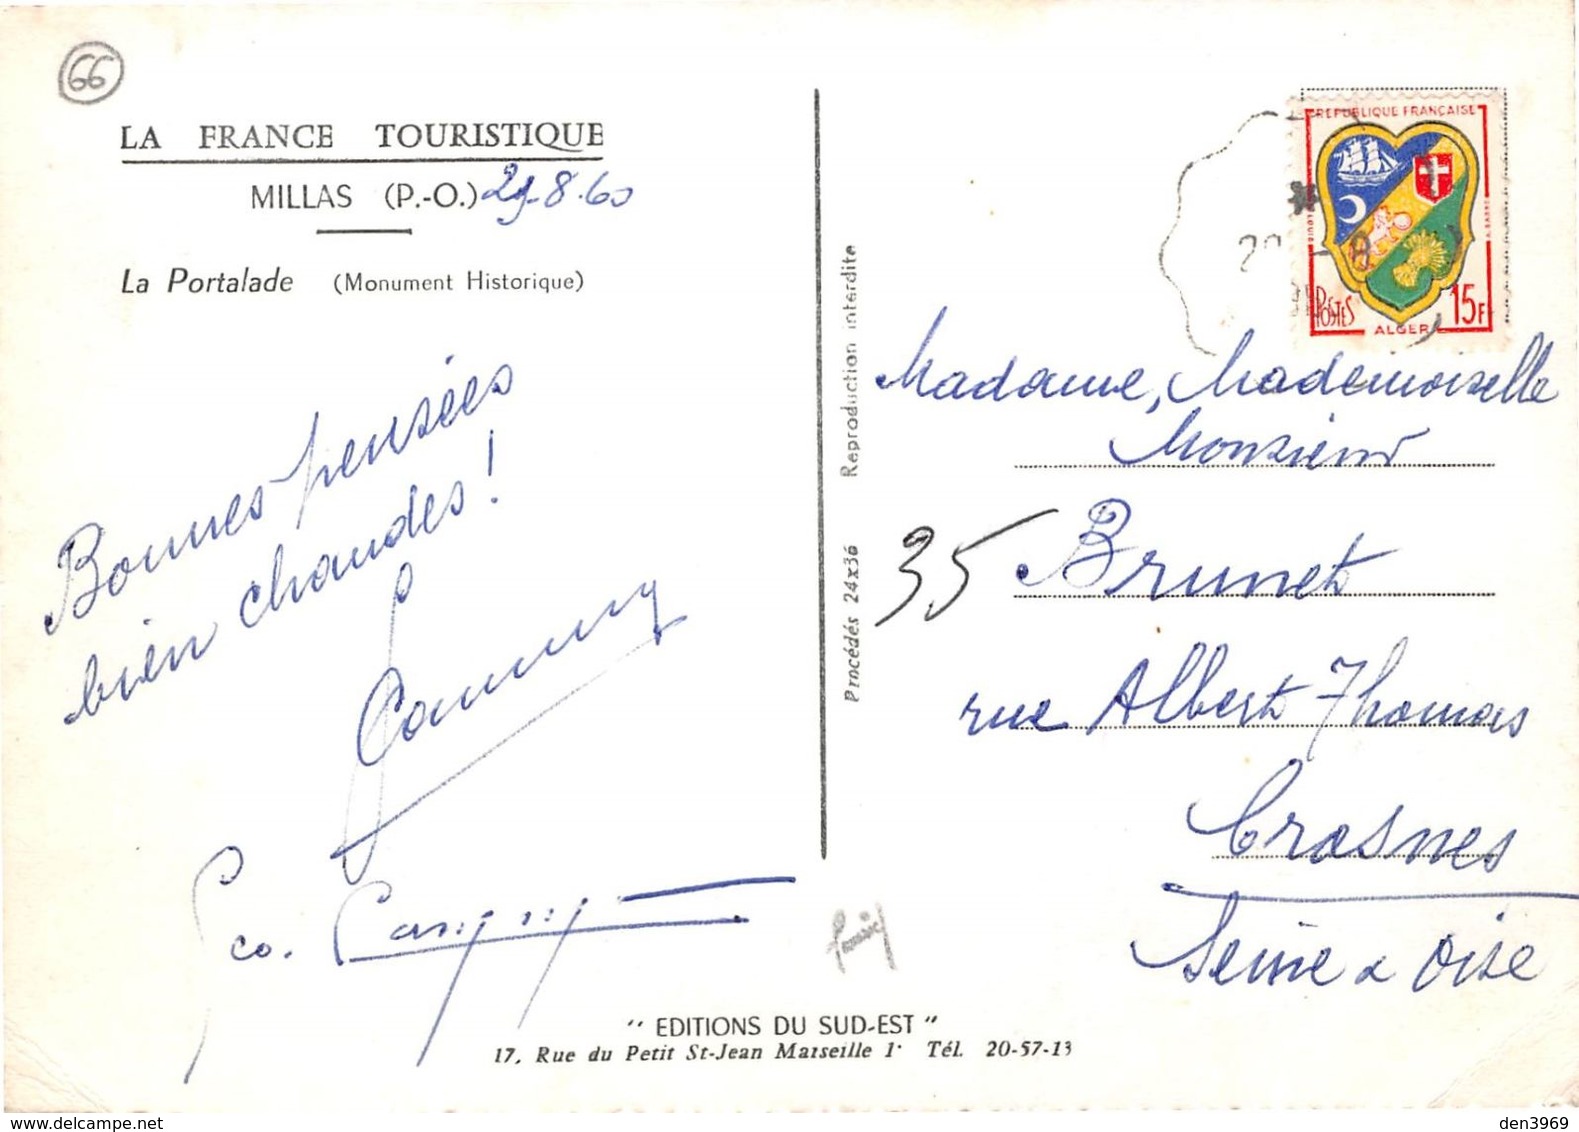 66
LA FRANCE TOURISTIQUE
MILLAS (P.-O.) 29-8-60
La Portalade (Monument Historique)
Bonnes pensées
bien chaudes !
Geo.
Procédés 24x36 Reproduction interdite
REPUBLIQUE FRANÇAISE
POSTES ALGER 15F
Madame, Mademoiselle
Monsieur
35 Brunet
rue Albert Thomas
Crosnes
Seine & Oise
" EDITIONS DU SUD-EST "
17, Rue du Petit St-Jean Marseille 1r Tél. 20-57-13
den3969